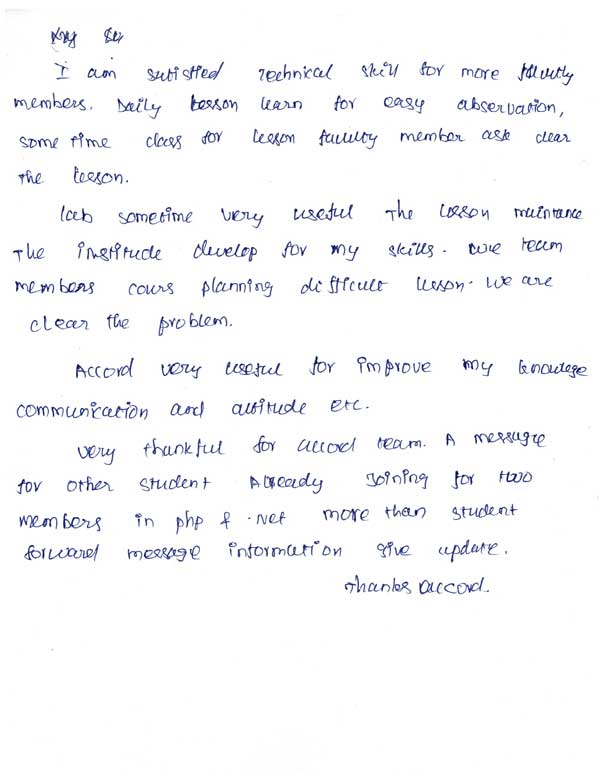 I am satisfied Technical skill for more faculty
members. Daily lesson learn for easy absorvation,
some time class for lesson faculty member ask clear
the lesson.
lab sometime very useful The lesson maintance
The institude develop for my skills. owe team
members cours planning difficult lesson. we are
clear the problem.
Accord very useful for improve my knowlege
communication and attitude etc.
very thankful for accord team. A message
for other student Already Joining for two
members in php & .net more than student
forward message information give update.
Thanks accord.